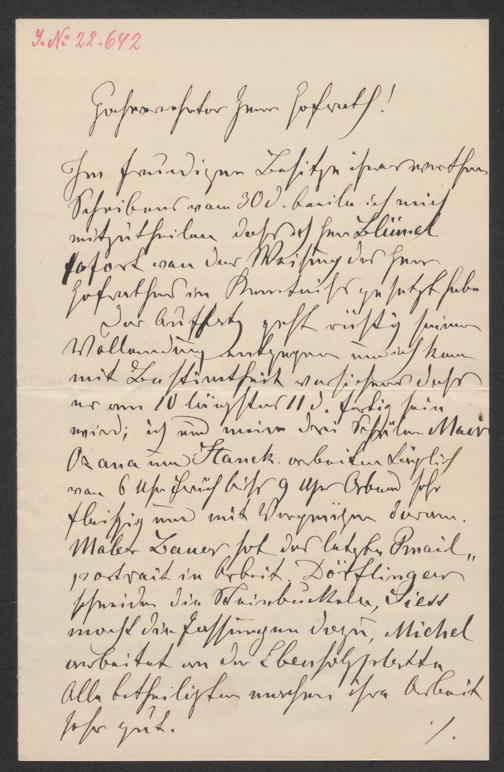 J. № 22.642
Hochverehrter Herr Hofrath!
Im freudigen Besitze ihres werthen
Schreibens vom 30 d. beeile ich mich
mitzutheilen dass ich Herr Blümel
sofort von der Weisung des Herr
Hofrathes in Kenntniss gesetzt habe
Der Aufsatz geht rüstig seiner
Vollendung entgegen und ich kann
mit Bestimtheit versichern dass
er am 10 längstens 11 d. fertig sein
wird; ich und meine drei Schüler Maier
Ozana und Stanek arbeiten täglich
von 6 Uhr Früh bis 9 Uhr Abend sehr
fleißig und mit Vergnügen daran.
Maler Bauer hat das letzte Email„
portrait in Arbeit, Dörflinger
schneidet die Steinbuckeln, Siess
macht die Fassungen dazu, Michel
arbeitet an der Ebenholzplatte
Alle betheiligten machen ihre Arbeit
sehr gut. ./.